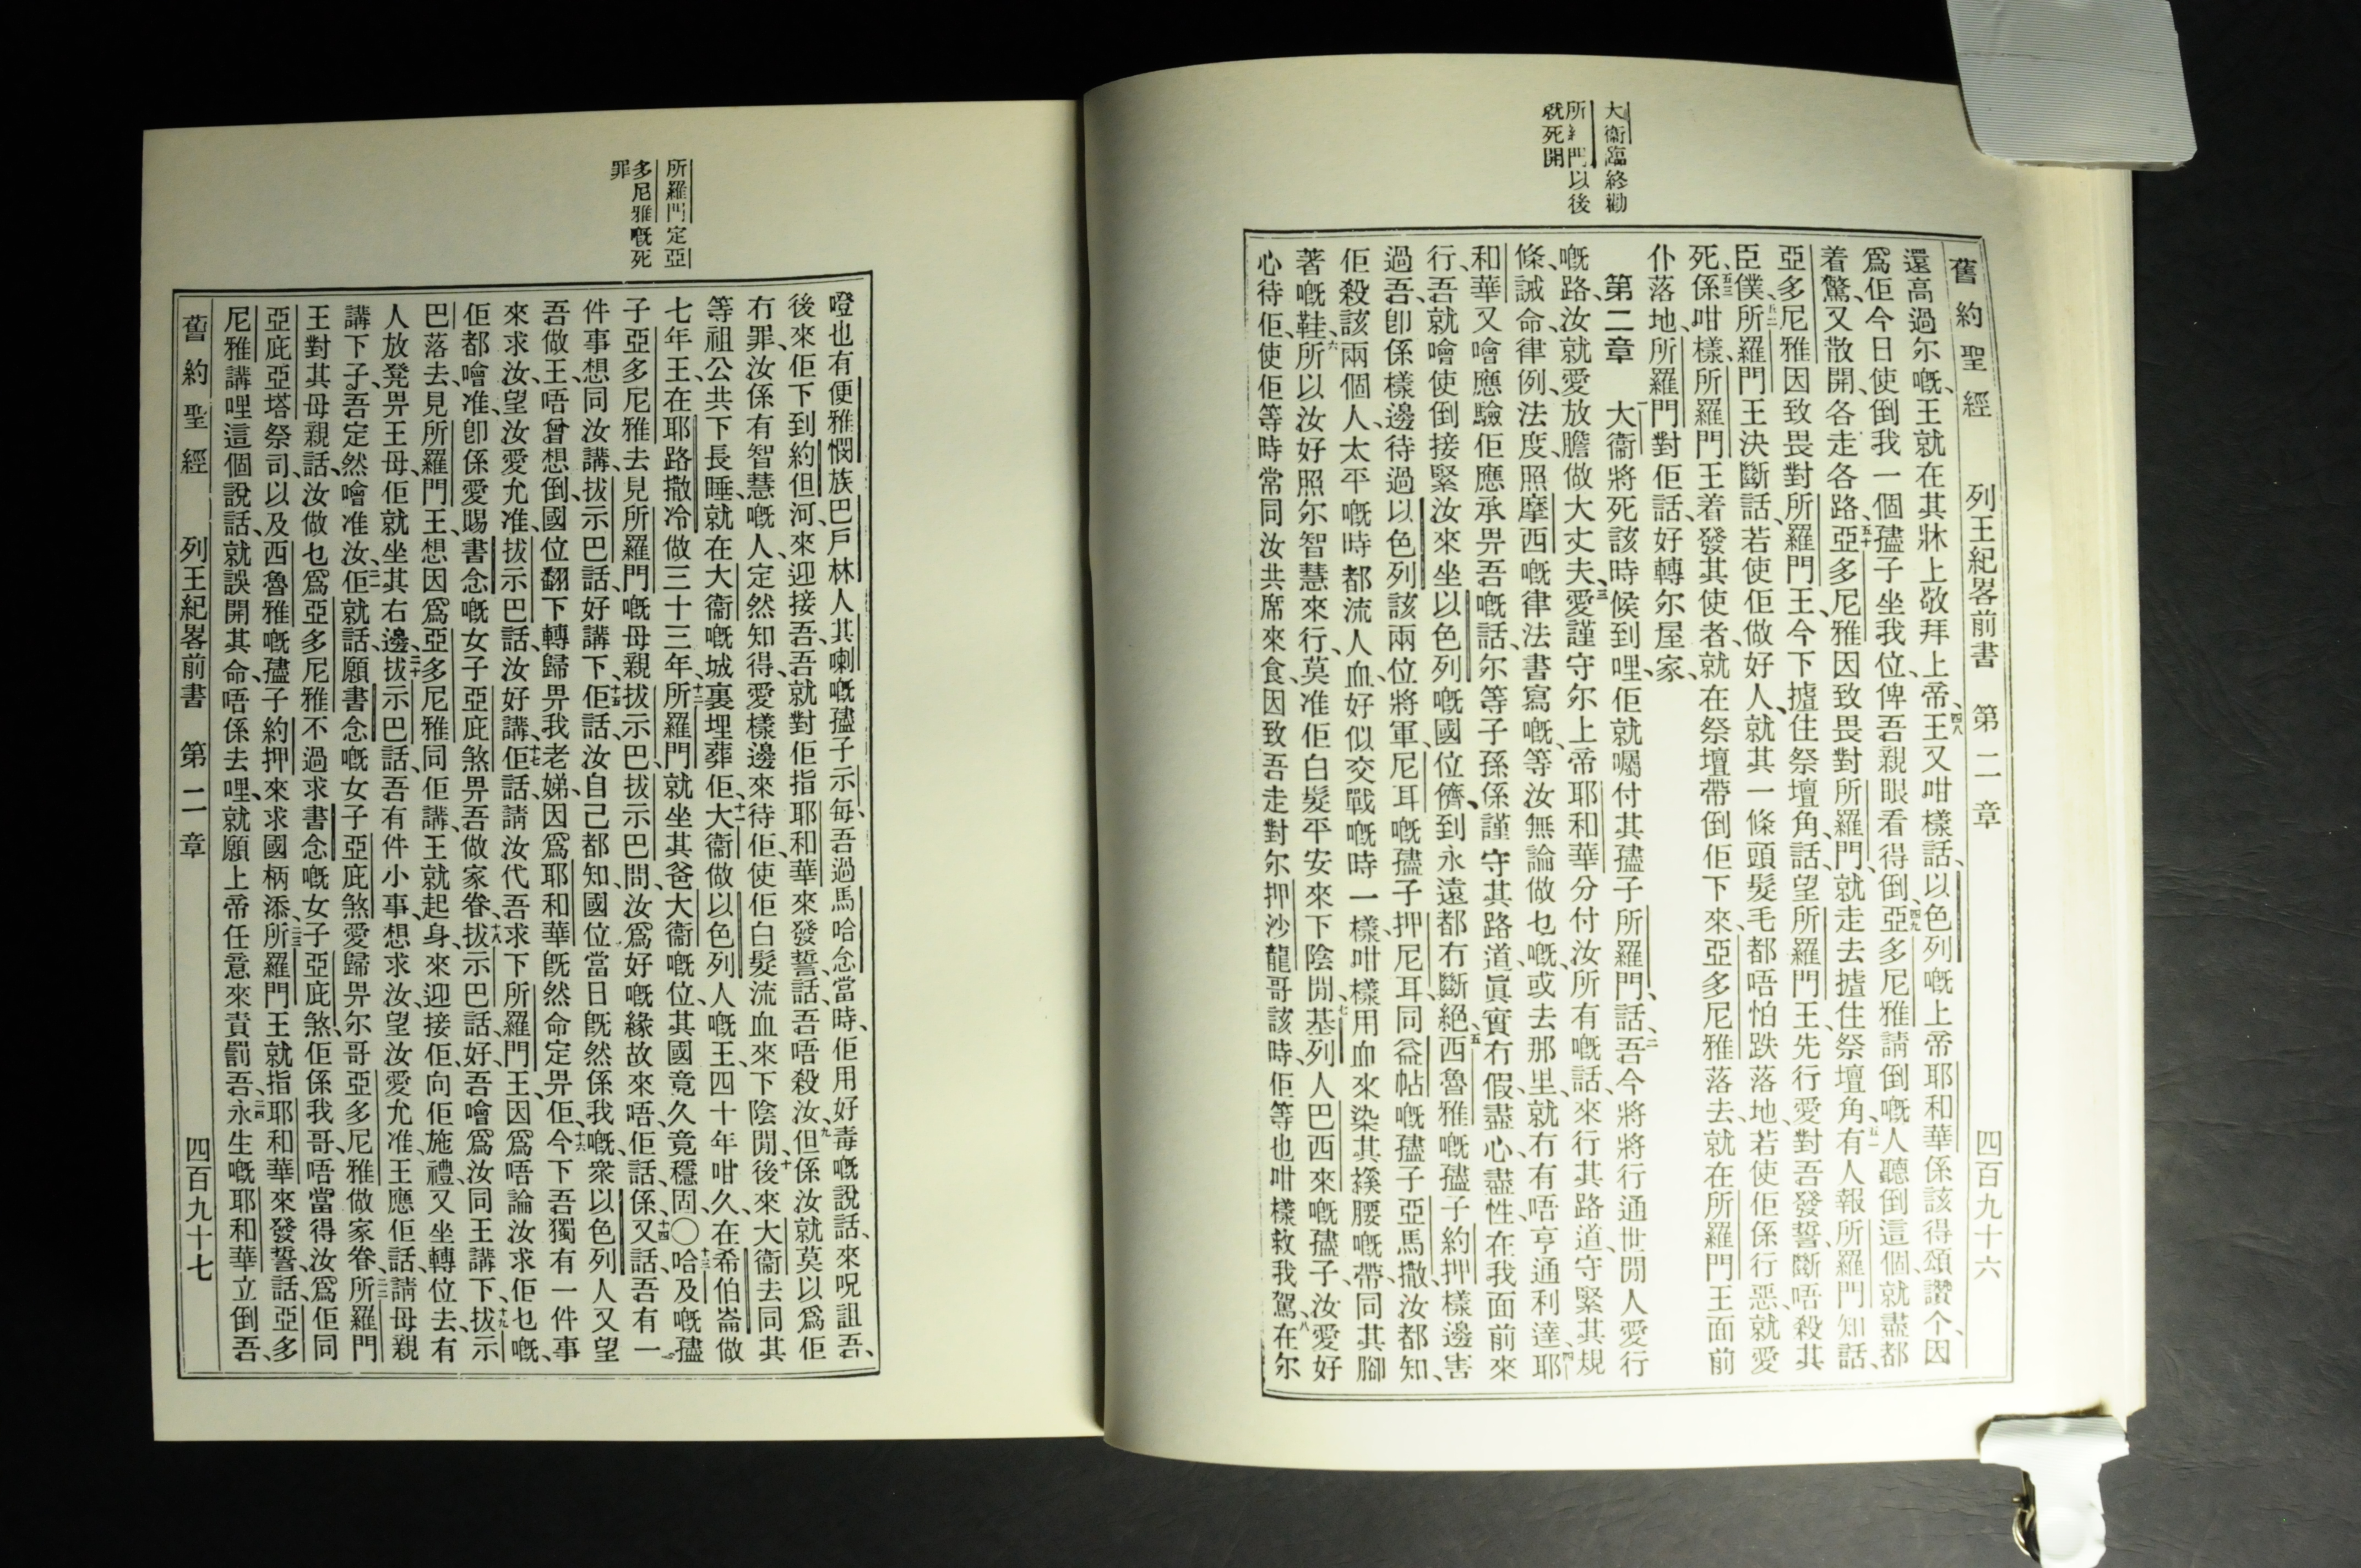 大衞臨終勸
所羅門以後
就死開
舊約聖經 列王紀畧前書 第二章 四百九十六
還高過尔嘅、王就在其牀上敬拜上帝、四八王又咁樣話、以色列嘅上帝耶和華係該得頌讚个、因
爲佢今日使倒我一個孻子坐我位、俾吾親眼看得倒、四九亞多尼雅請倒嘅人聽倒這個、就盡都
着驚、又散開各走各路、五十亞多尼雅因致畏對所羅門、就走去揸住祭壇角、五一有人報所羅門知話、
亞多尼雅因致畏對所羅門王、今下揸住祭壇角、話、望所羅門王、先行愛對吾發誓、斷唔殺其
臣僕、五二所羅門王決斷話、若使佢做好人、就其一條頭髮毛都唔怕跌落地、若使佢係行惡、就愛
死、五三係咁樣、所羅門王着發其使者、就在祭壇帶倒佢下來、亞多尼雅落去、就在所羅門王面前
仆落地、所羅門對佢話、好轉尔屋家、
第二章 一大衞將死該時候到哩、佢就囑付其孻子所羅門、話、二吾今將將行通世閒人愛行
嘅路、汝就愛放膽做大丈夫、三愛謹守尔上帝耶和華分付汝所有嘅話、來行其路道、守緊其規
條、誡命、律例、法度、照摩西嘅律法書寫嘅、等汝無論做乜嘅、或去那里、就冇有唔亨通利達、四耶
和華又噲應驗佢應承畀吾嘅話、尔等子孫係謹守其路道、眞實冇假、盡心盡性、在我面前來
行、吾就噲使倒接緊汝來坐以色列嘅國位、儕到永遠都冇斷絕、五西魯雅嘅孻子約押樣邊害
過吾、卽係樣邊待過以色列該兩位將軍、尼耳嘅孻子押尼耳、同益帖嘅孻子亞馬撒、汝都知、
佢殺該兩個人、太平嘅時都流人血、好似交戰嘅時一樣、咁樣用血來染其䙆腰嘅帶、同其腳
著嘅鞋、六所以汝好照尔智慧來行、莫准佢白髮平安來下陰閒、七基列人巴西來嘅孻子、汝愛好
心待佢、使佢等時常同汝共席來食、因致吾走對尔押沙龍哥該時、佢等也咁樣救我駕、八在尔
所羅門定亞
多尼雅嘅死
罪
噔也有便雅憫族巴戶林人其喇嘅孻子示每、吾過馬哈念當時、佢用好毒嘅說話、來呪詛吾、
後來佢下到約但河、來迎接吾、吾就對佢指耶和華來發誓、話、吾唔殺汝、九但係汝就莫以爲佢
冇罪、汝係有智慧嘅人、定然知得、愛樣邊來待佢、使佢白髮流血來下陰閒、十後來、大衞去同其
等祖公共下長睡、就在大衞嘅城裏埋葬佢、十一大衞做以色列人嘅王、四十年咁久、在希伯崙做
七年王、在耶路撒冷做三十三年、十二所羅門就坐其爸大衞嘅位、其國竟久竟穩固、〇十三哈及嘅孻
子亞多尼雅去見所羅門嘅母親拔示巴、拔示巴問、汝爲好嘅緣故來唔、佢話、係、十四又話、吾有一
件事想同汝講、拔示巴話、好講下、十五佢話、汝自己都知、國位當日旣然係我嘅、衆以色列人又望
吾做王、唔曾想倒、國位翻下轉歸畀我老娣、因爲耶和華旣然命定畀佢、十六今下吾獨有一件事
來求汝、望汝愛允准、拔示巴話、汝好講、十七佢話、請汝代吾求下所羅門王、因爲唔論汝求佢乜嘅、
佢都噲准、卽係愛賜書念嘅女子亞庇煞畀吾做家眷、十八拔示巴話、好、吾噲爲汝同王講下、十九拔示
巴落去、見所羅門王、想因爲亞多尼雅同佢講、王就起身、來迎接佢、向佢施禮、又坐轉位去、有
人放凳畀王母、佢就坐其右邊、二十拔示巴話、吾有件小事、想求汝、望汝愛允准、王應佢話、請母親
講下子、吾定然噲准汝、二一佢就話、願書念嘅女子亞庇煞愛歸畀尔哥亞多尼雅做家眷、二二所羅門
王對其母親話、汝做乜爲亞多尼雅不過求書念嘅女子亞庇煞、佢係我哥、唔當得汝爲佢同
亞庇亞塔祭司、以及西魯雅嘅孻子約押來求國柄添、二三所羅門王就指耶和華來發誓、話、亞多
尼雅講哩這個說話、就誤開其命、唔係去哩、就願上帝任意來責罰吾、二四永生嘅耶和華立倒吾、
舊約聖經 列王紀畧前書 第二章 四百九十七